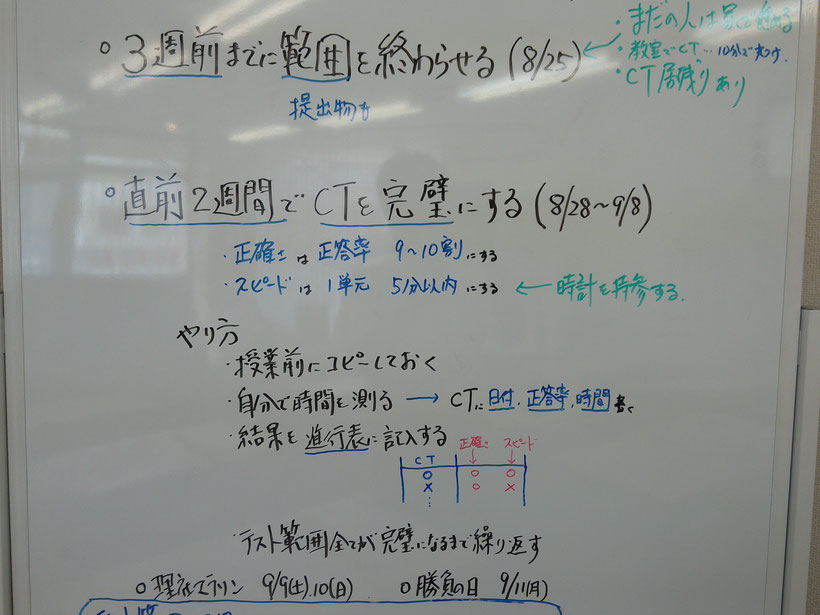 ○3週前までに範囲を終わらせる(8/25)
・まだの人は
・教室でCT…10分で
・CT居残りあり
提出物も
○直前2週間でCTを完璧にする(8/28~9/8)
・正確さは正答率 9~10割にする
・スピードは1単元 5分以内にする ← 時計を持参する.
やり方
・授業前にコピーしておく
・自分で時間を測る → CTに日付.正答率,時間書く
・結果を進行表に記入する
正確さ スピード
↓ ↓
CT
○ ○ ○
× ○ ×
テスト範囲全てが完璧になるまで繰り返す
○理社マラソン 9/9(土).10(日) ○勝負の日 9/11(月)